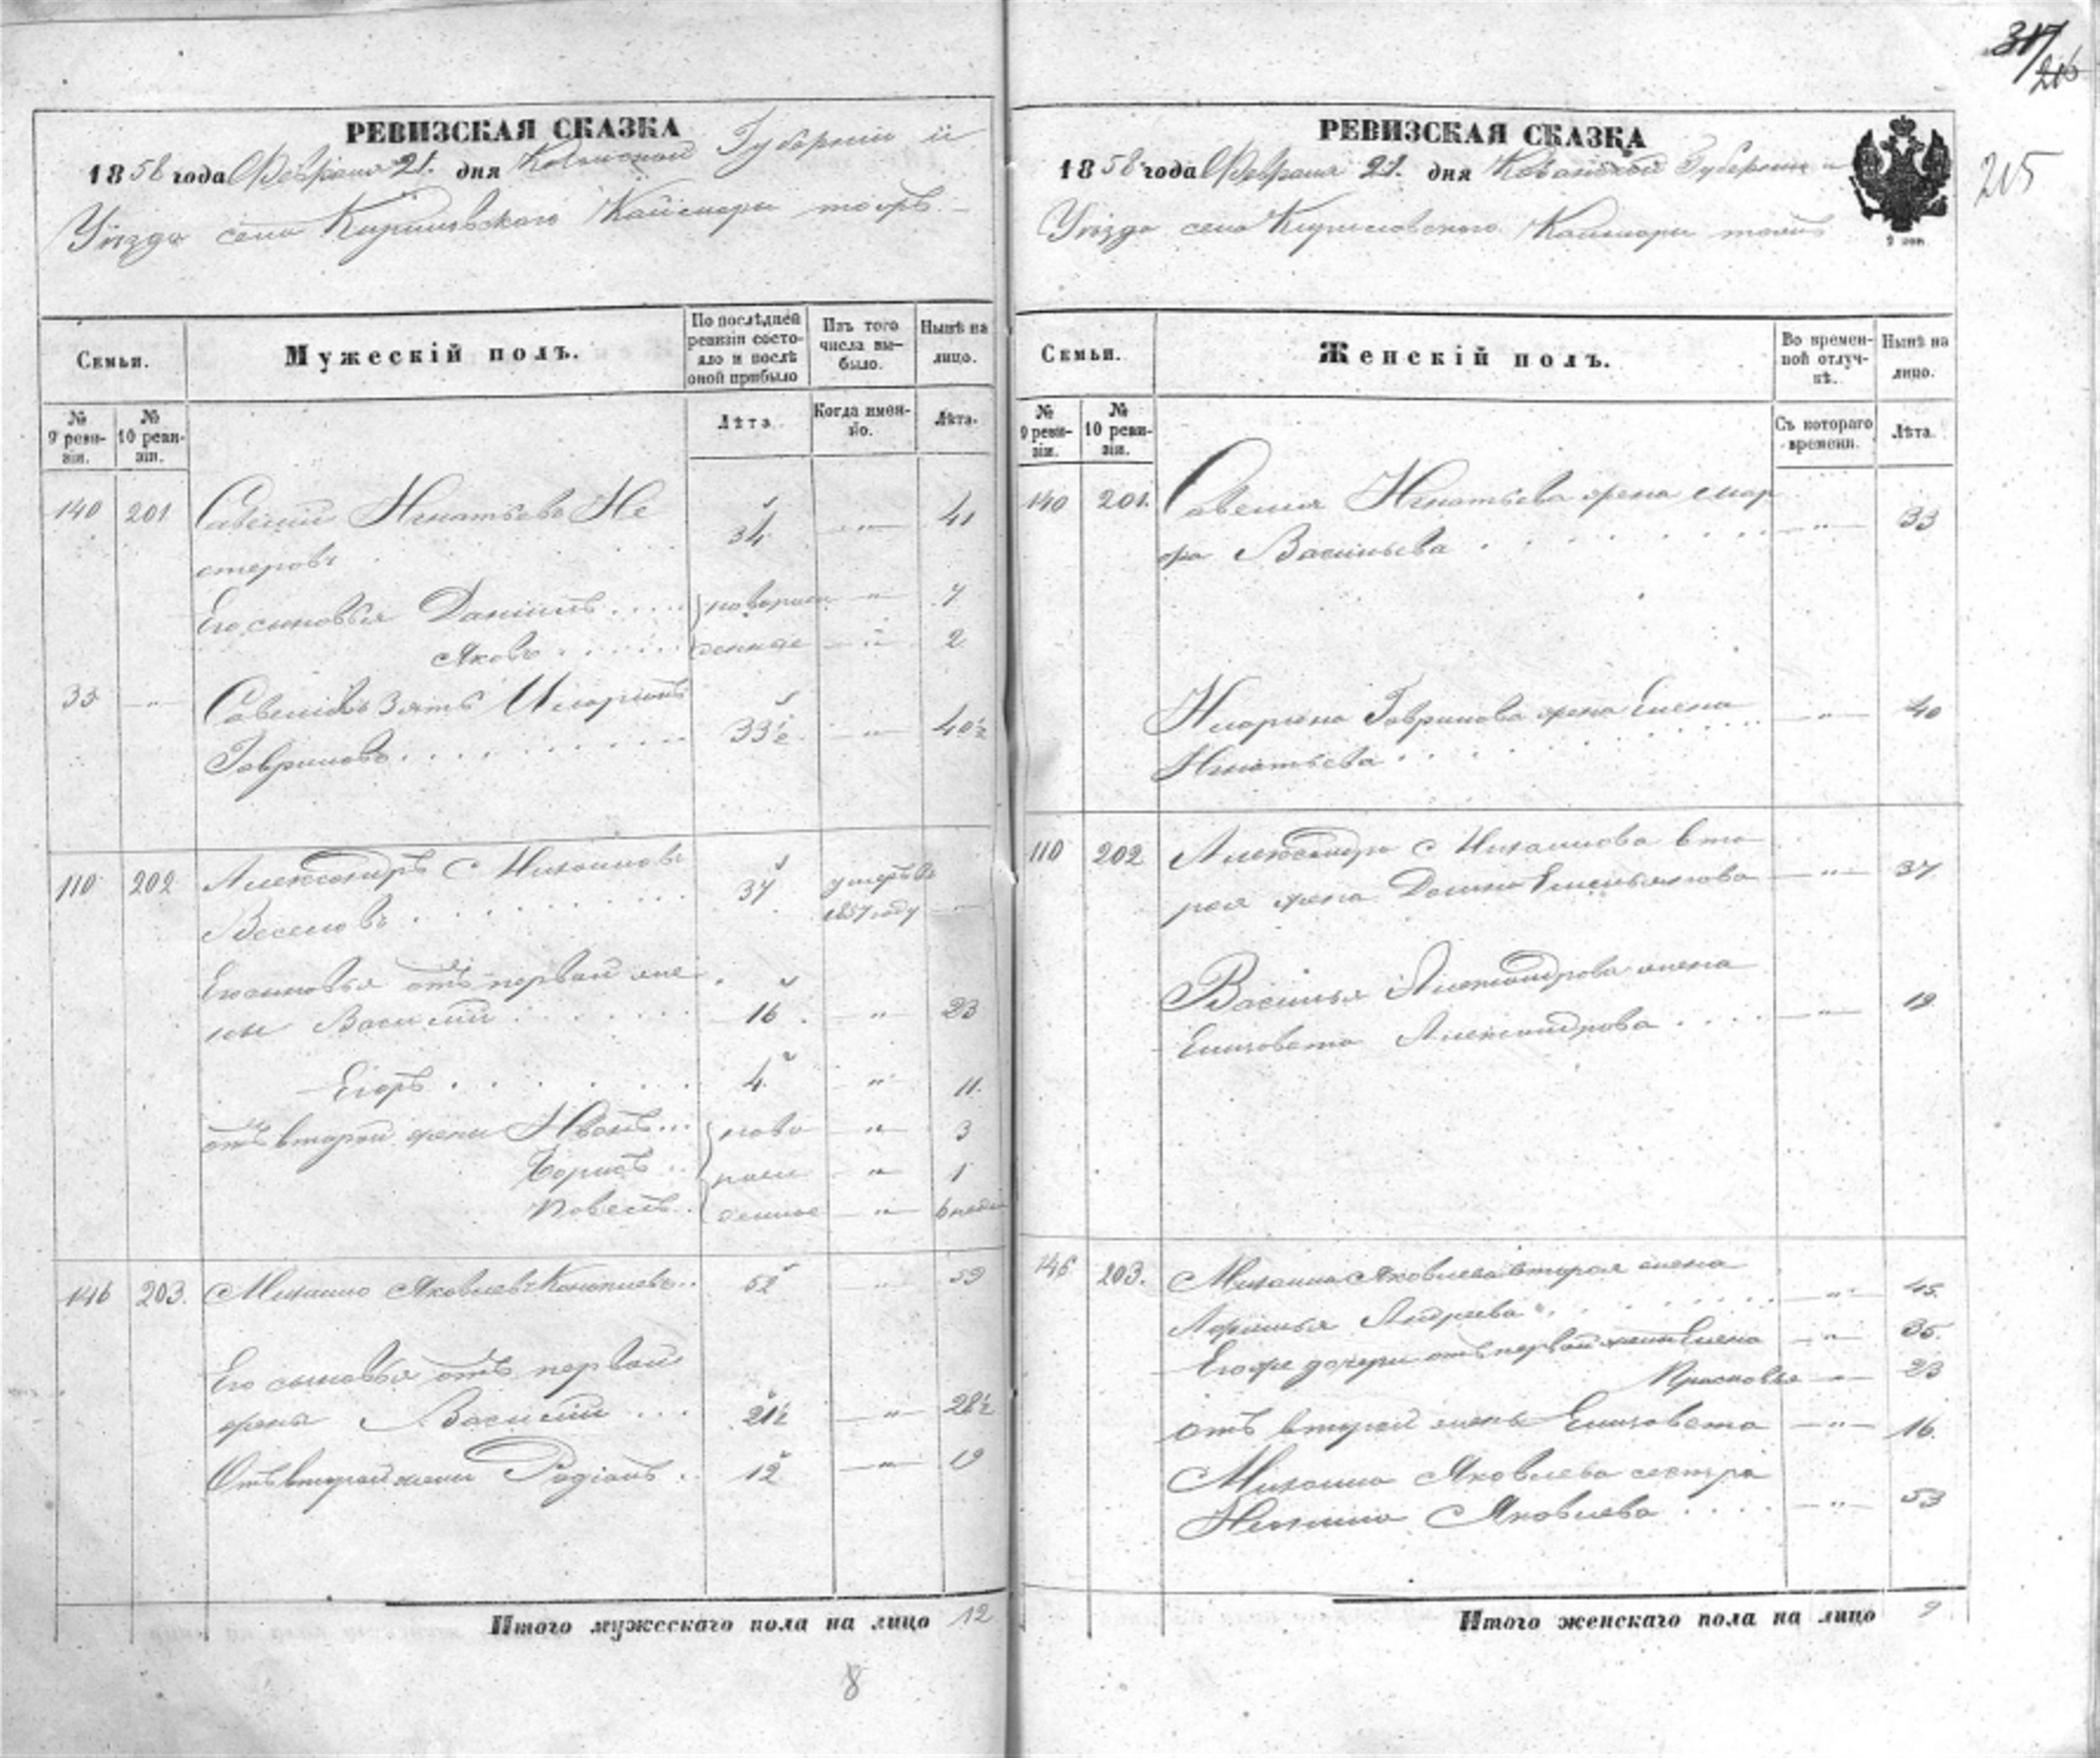 317
216
215
РЕВИЗСКАЯ СКАЗКА
1858 года Февраля 21. дня Казанской Губерніи и
Уѣзда села Кириловскаго Кайморы тожъ
Семьи.
Мужескій полъ.
По послѣдней ревизіи состояло и послѣ оной прибыло
Изъ того числа выбыло.
Нынѣ на лицо.
№ 9 ревизіи.
№ 10 ревизіи.
Лѣта.
Когда именно.
Лѣта.
140 201 Савелій Игнатьевъ Не 34 " 41
стеровъ
Его сыновья Даніилъ новорож " 7
Яковъ денные " 2
33 " Савелія зять Иларіонъ
Гавриловъ 33½ " 40½
110 202 Александръ С Михаиловъ 37 умеръ въ
Веселовъ 1857 году
Его сыновья отъ первой же
ны Василій 16 " 23
Егоръ 4 " 11.
отъ второй жены Иванъ ново " 3
Борисъ рож " 1
Павелъ денные " 6 недѣль
146 203. Михаило Яковлевъ 52 " 59
Его сыновья отъ первой
жены Василій 21½ " 28½
Отъ второй жены Родіонъ 12 " 19
Итого мужескаго пола на лицо 12
8
РЕВИЗСКАЯ СКАЗКА
1858 года Февраля 21. дня Казанской Губерніи и
Уѣзда села Кириловскаго Кайморы тожъ
Семьи.
Женскій полъ.
Во временной отлучкѣ.
Нынѣ на лицо.
№ 9 ревизіи.
№ 10 ревизіи.
Съ котораго времени.
Лѣта.
140 201. Савелія Игнатьева жена Мар
фа Васильева " 33
Иларіона Гаврилова жена Елена " 40
Игнатьева
110 202 Александра С Михаилова вто
рая жена Домна Емельянова " 37
Василья Александрова жена
Елизавета Александрова " 19
146 203. Михаила Яковлева вторая жена
Андреева " 45
Его же дочери отъ первой жены Елена " 35.
Прасковья " 23
отъ второй жены Елизавета " 16.
Михаила Яковлева сестра
Яковлева " 53
Итого женскаго пола на лицо 9